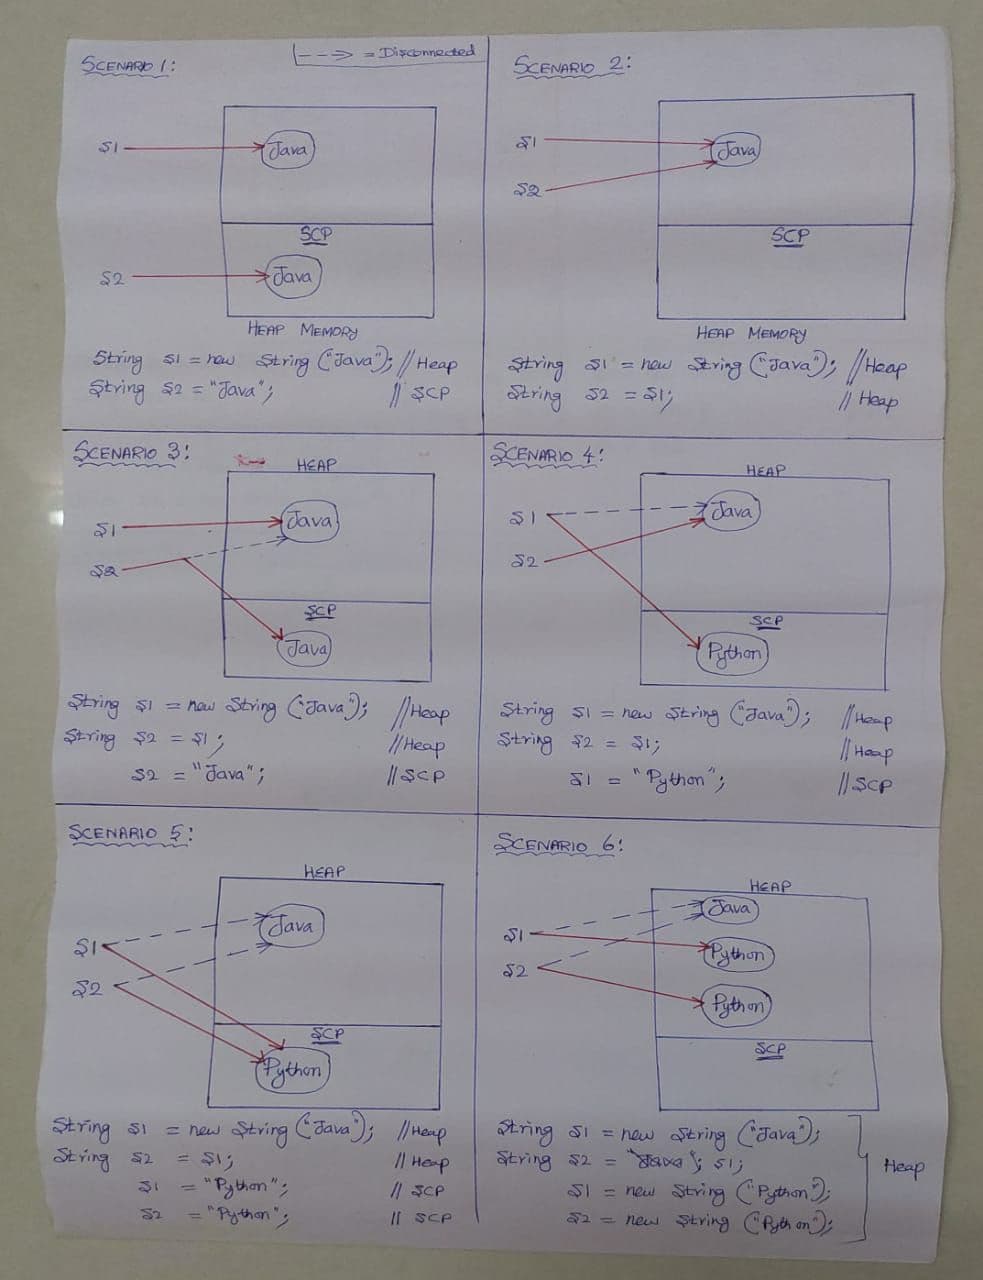 SCENARIO 1:
---> = Disconnected
S1
Java
SCP
S2
Java
HEAP MEMORY
String S1 = new String ("Java"); //Heap
String S2 = "Java"; // SCP
SCENARIO 2:
S1
Java
S2
SCP
HEAP MEMORY
String S1 = new String ("Java"); //Heap
String S2 = S1; // Heap
SCENARIO 3:
HEAP
S1
Java
S2
SCP
Java
String S1 = new String ("Java"); //Heap
String S2 = S1; //Heap
S2 = "Java"; // SCP
SCENARIO 4:
HEAP
S1
Java
S2
SCP
Python
String S1 = new String ("Java"); //Heap
String S2 = S1; //Heap
S1 = "Python"; //SCP
SCENARIO 5:
HEAP
Java
S1
S2
SCP
Python
String S1 = new String ("Java"); //Heap
String S2 = S1; // Heap
S1 = "Python"; // SCP
S2 = "Python"; // SCP
SCENARIO 6:
HEAP
Java
S1
Python
S2
Python
SCP
String S1 = new String ("Java");
String S2 = "Java"; S1;
S1 = new String ("Python");
S2 = new String ("Python");
Heap